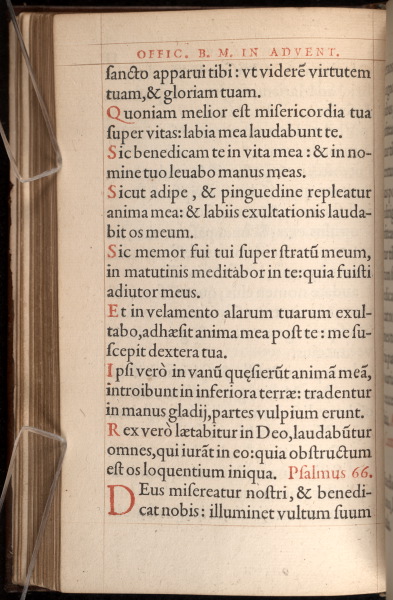 OFFIC. B. M. IN ADVENT.
ſancto apparui tibi: vt viderē virtutem
tuam, & gloriam tuam.
Quoniam melior eſt miſericordia tua
ſuper vitas: labia mea laudabunt te.
Sic benedicam te in vita mea: & in no-
mine tuo leuabo manus meas.
Sicut adipe, & pinguedine repleatur
anima mea: & labiis exultationis lauda-
bit os meum.
Sic memor fui tui ſuper ſtratū meum,
in matutinis meditabor in te: quia fuiſti
adiutor meus.
Et in velamento alarum tuarum exul-
tabo, adhæſit anima mea poſt te: me ſu-
ſcepit dextera tua.
Ipſi verò in vanū quęſierūt animā meā,
introibunt in inferiora terræ: tradentur
in manus gladij, partes vulpium erunt.
Rex verò lætabitur in Deo, laudabūtur
omnes, qui iurāt in eo: quia obſtructum
eſt os loquentium iniqua. Pſalmus 66.
DEus miſereatur noſtri, & benedi-
cat nobis: illuminet vultum ſuum